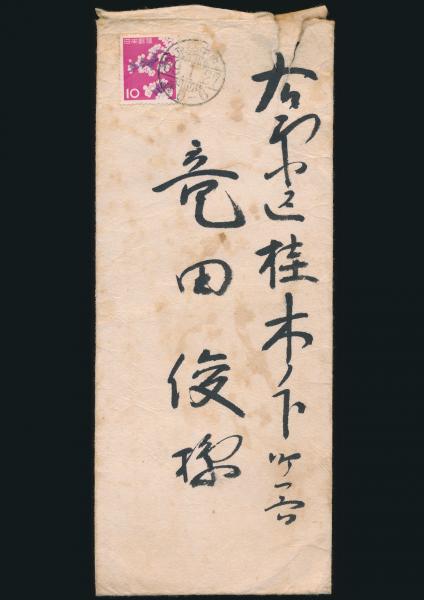 右京区桂木ノ下町
竜田俊様
日本郵便
10